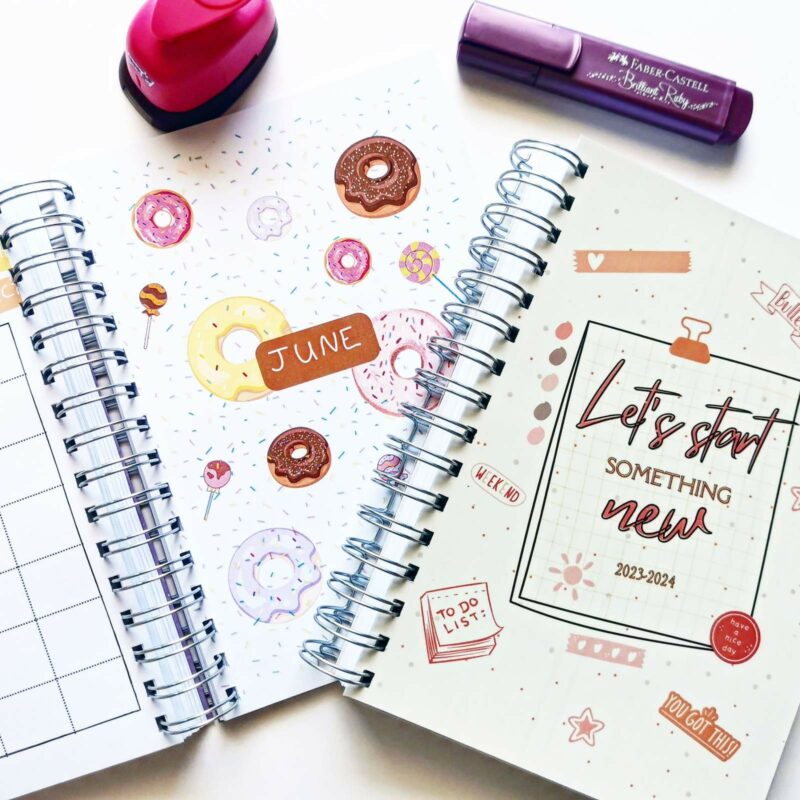 FABER-CASTELL
Brilliant Ruby
JUNE
Let's start
SOMETHING
new
2023-2024
WEEKEND
TO DO
LIST:
have
a nice
day
YOU GOT THIS!